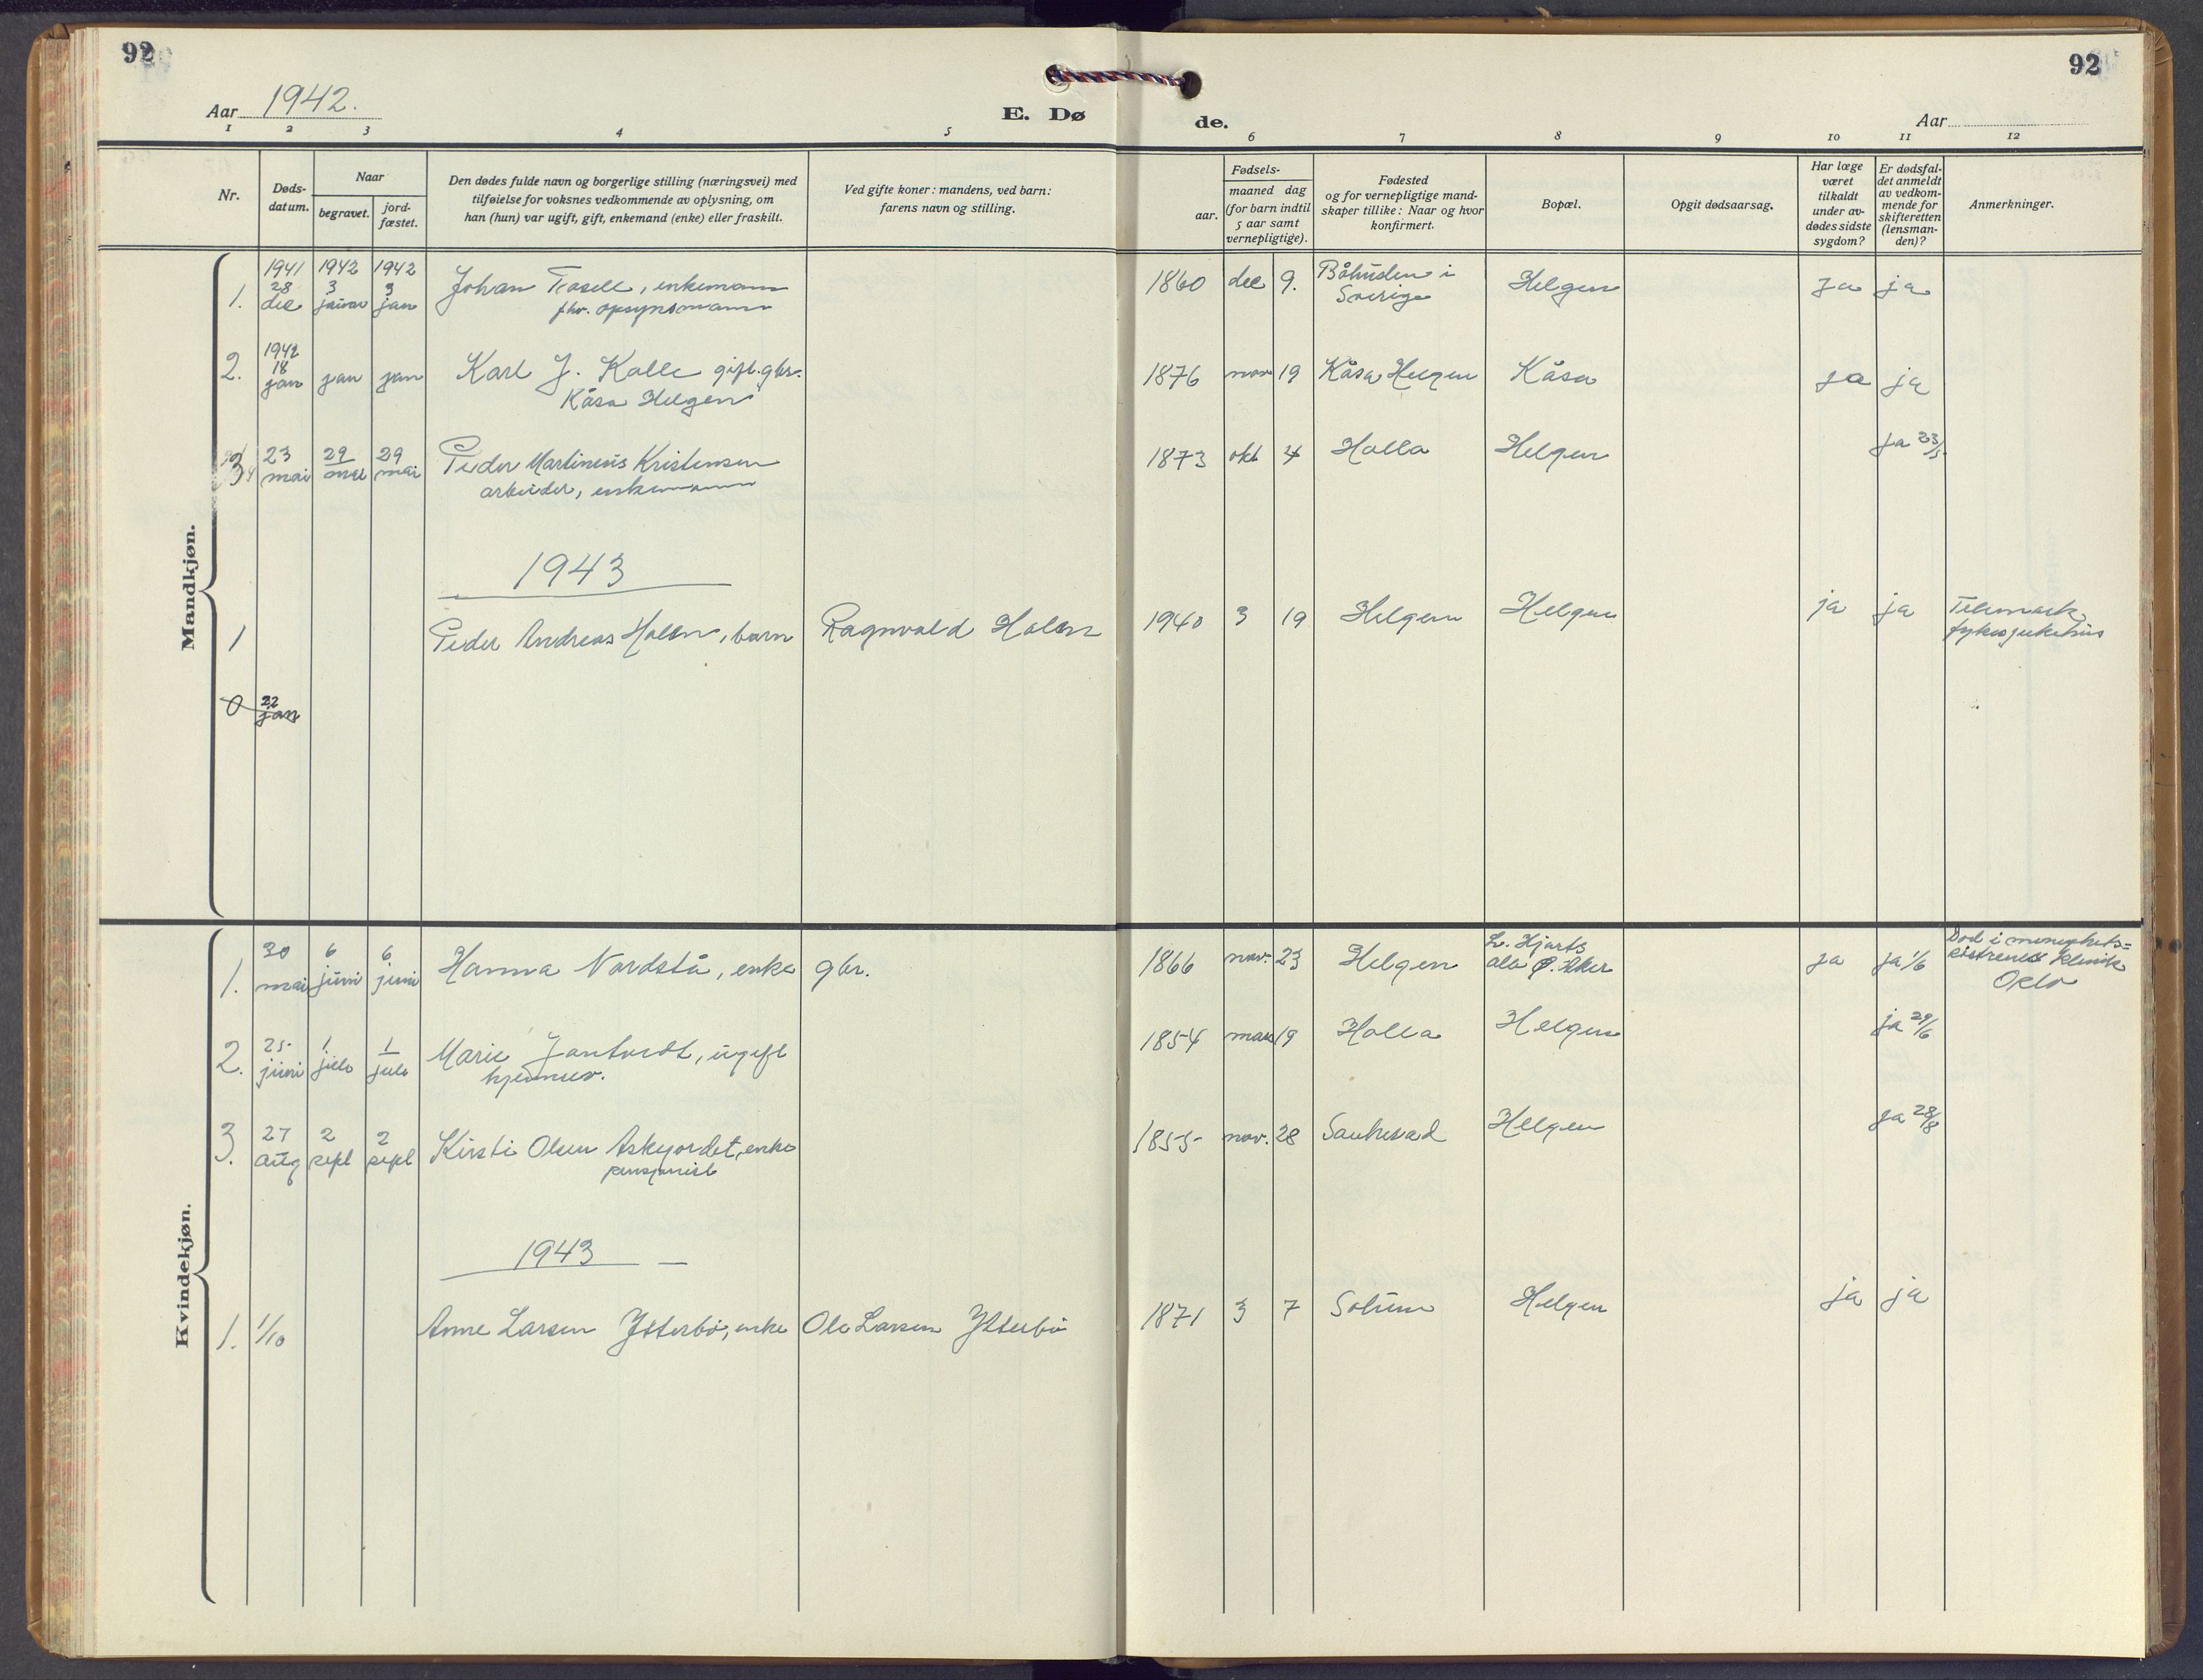 92
92
Aar 1942.
E. Dø
de.
Aar
1 2 3 4 5 6 7 8 9 10 11 12
Nr.
Døds-
datum.
Naar
begravet.
jord-
fæstet.
Den dødes fulde navn og borgerlige stilling (næringsvei) med
tilføielse for voksnes vedkommende av oplysning, om
han (hun) var ugift, gift, enkemand (enke) eller fraskilt.
Ved gifte koner: mandens, ved barn:
farens navn og stilling.
Fødsels-
aar.
maaned dag
(for barn indtil
5 aar samt
vernepligtige).
Fødested
og for vernepligtige mand-
skaper tillike: Naar og hvor
konfirmert.
Bopæl.
Opgit dødsaarsag.
Har læge
været
tilkaldt
under av-
dødes sidste
sygdom?
Er dødsfal-
det anmeldt
av vedkom-
mende for
skifteretten
(lensman-
den)?
Anmerkninger.
Mandkjøn.
1941 1942 1942
1. 28 dec 3 januar 3 jan Johan , enkemann 1860 dec 9. Båhuslen i Helgen Ja ja
fhv. opsynsmann Sverige
1942
2. 18 jan jan jan Karl J. Kolle gift. gbr. 1876 nov 19 Kåsa Helgen Kåsa ja ja
Kåsa Helgen
3 23 mai 29 mai 29 mai Peder Martinius Kristensen 1873 okt 4 Holla Helgen ja 23/5
arbeider, enkemann
1943
1 Peder Andreas Holen, barn Ragnvald Holen 1940 3 19 Helgen Helgen ja ja Telemark
fylkessjukehus
0 22 jan
Kvindekjøn.
1. 30 mai 6 juni 6 juni Hanna Nordstå, enke gbr. 1866 nov. 23 Helgen L. Hjarts ja ja 1/6 Död i menighets=
alle Ø. Aker søstrenes klinik
Oslo
2. 25. juni 1 juli 1 juli Marie Jontvedt, ugift 1854 mars 19 Holla Helgen ja 29/6
hjemmev.
3. 27 aug 2 sept 2 sept Kirsti Olsen Askjordet, enke 1855 nov. 28 Sauherad Helgen ja 28/8
pensjonist
1943
1. 1/10 Anne Larsen Ytterbø, enke Ole Larsen Ytterbø 1871 3 7 Solum Helgen ja ja